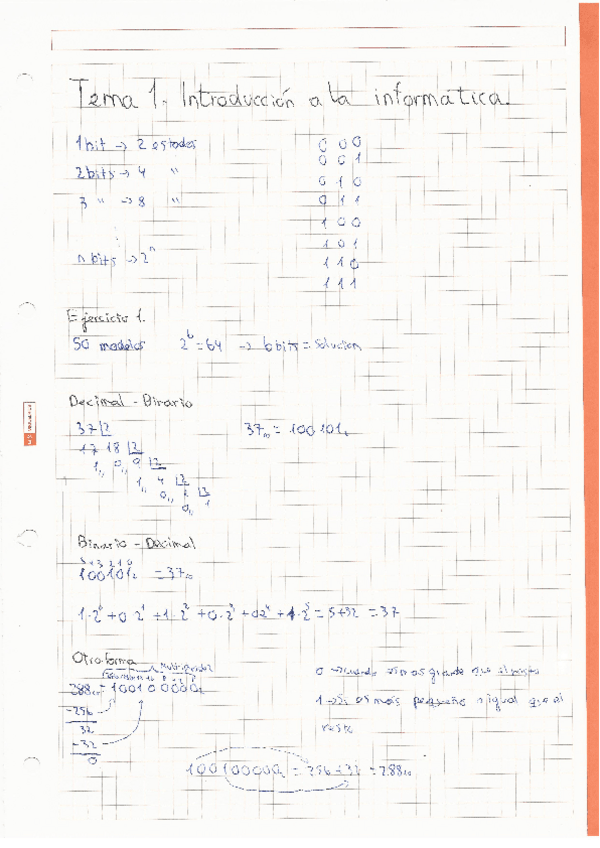 Tema 1. Introducción a la informática.
1 bit → 2 estados
2 bits → 4 "
3 " → 8 "
n bits → 2ⁿ
0 0 0
0 0 1
0 1 0
0 1 1
1 0 0
1 0 1
1 1 0
1 1 1
Ejercicio 1.
50 modelos 2⁶ = 64 → 6 bits = solución
Decimal - Binario
37 |2
17 18 |2
1 0 9 |2
1 4 |2
0 2 |2
0 1
37₁₀ = 100101₂
Binario - Decimal
5 4 3 2 1 0
100101₂ = 37₁₀
1·2⁰ + 0·2¹ + 1·2² + 0·2³ + 0·2⁴ + 1·2⁵ = 5+32 = 37
Otra forma
288₁₀ = 100100000₂
-256
32
-32
0
0 → cuando es mas grande que
1 → Si es más pequeño o igual que al
resto
100100000₂ = 256+32 = 288₁₀